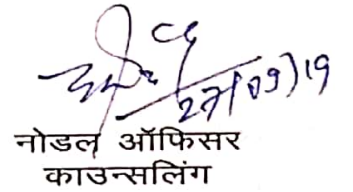 27/09/19
नोडल ऑफिसर
काउन्सलिंग